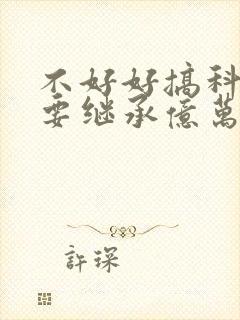 不好好搞科
要继承億萬
許琛